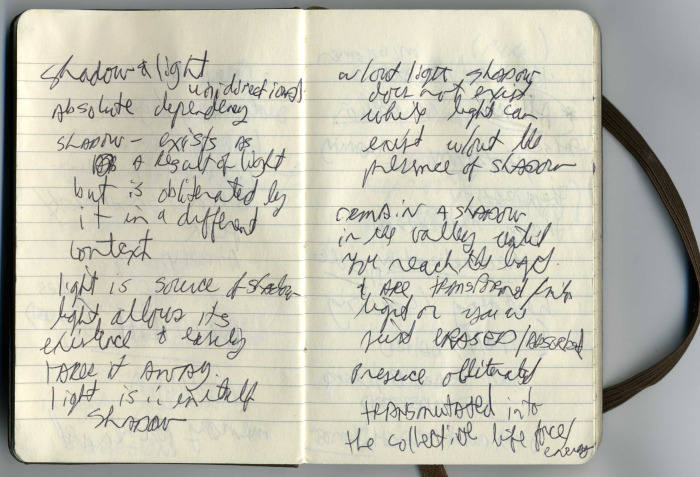 Shadow & light
unidirectional
Absolute dependency
SHADOW - exists as
A Result of light
but is obliterated by
it in a different
context
light is source of shadow
light allows its
existence & easily
TAKES it AWAY.
light is in itself
SHADOW
w/out light, SHADOW
does not exist
while light can
exist w/out the
presence of SHADOW
remain A SHADOW
in the valley until
you reach the light
& ARE TRANSFORMED into
light or you're
just ERASED/ABSORBED
Presence obliterated
TRANSMUTATED into
the collective life force/
energy